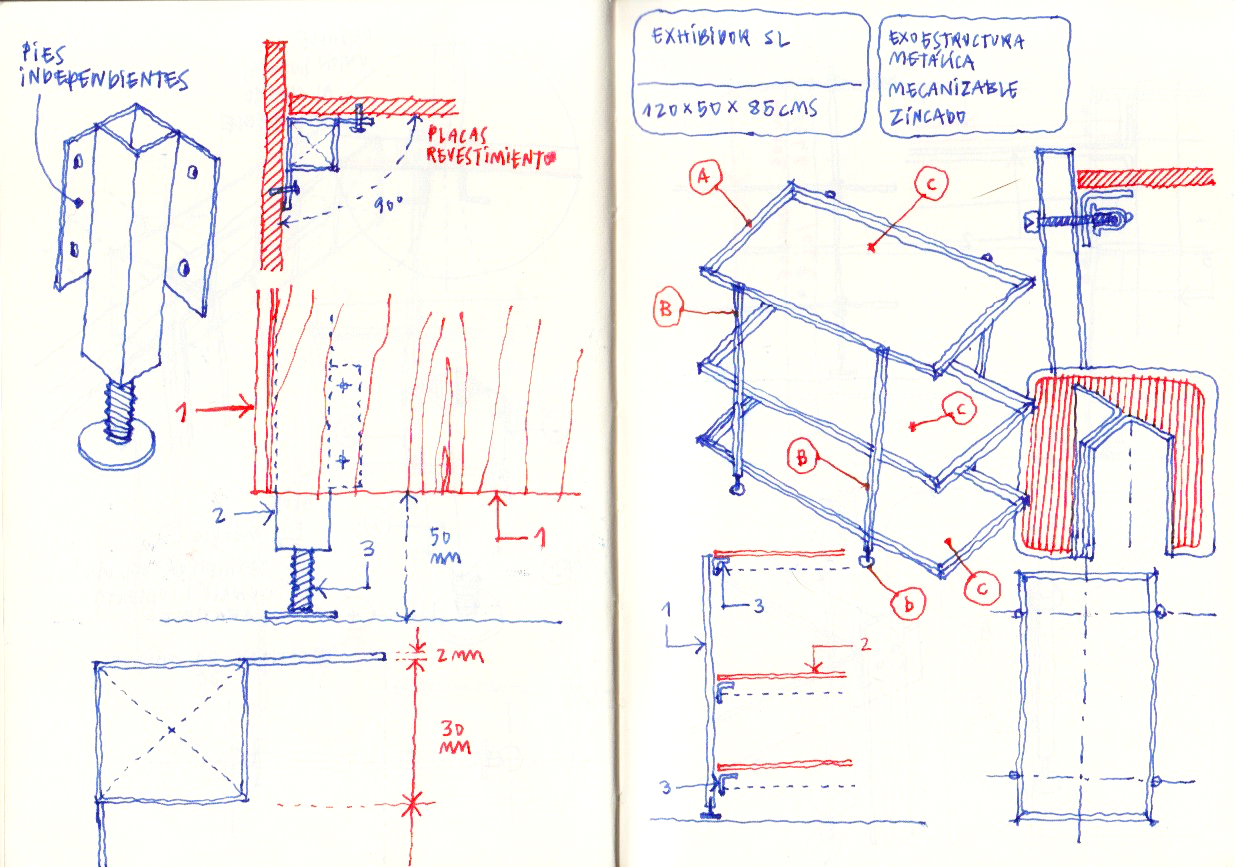 PIES
INDEPENDIENTES
PLACAS
REVESTIMIENTO
90º
1
2
3
50
MM
1
2 MM
30
MM
EXHIBIDOR SL
120 x 50 x 85 CMS
EXOESTRUCTURA
METÁLICA
MECANIZABLE
ZINCADO
A
C
B
C
B
C
D
3
1
2
3